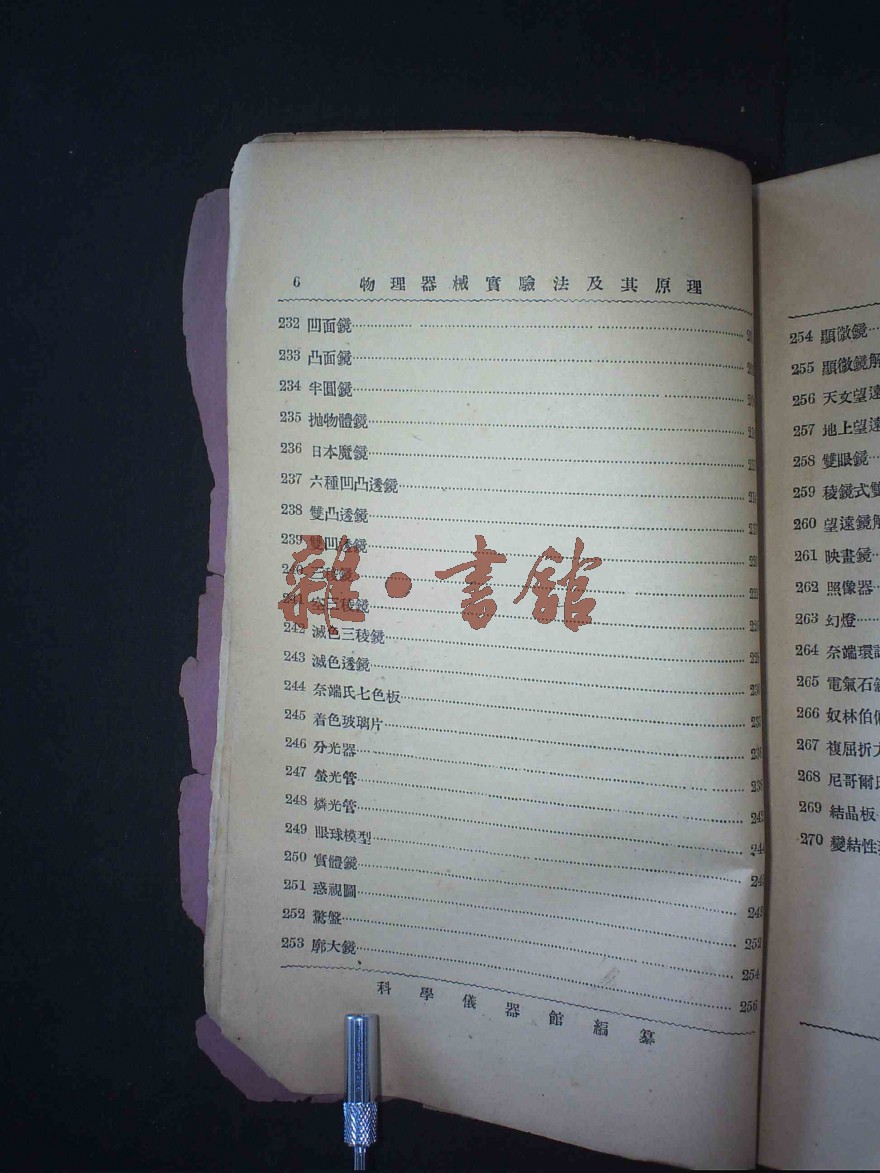 6 物理器械實驗法及其原理
232 凹面鏡
233 凸面鏡
234 半圓鏡
235 拋物體鏡
236 日本魔鏡
237 六種凹凸透鏡
238 雙凸透鏡
239 雙凹透鏡
240 三稜鏡
241 空三稜鏡
242 滅色三稜鏡
243 滅色透鏡
244 奈端氏七色板
245 着色玻璃片
246 分光器
247 螢光管
248 燐光管
249 眼球模型
250 實體鏡
251 惑視圖
252 驚盤 254
253 廓大鏡 256
科學儀器館編纂
雜·書館
254 顯微鏡
255 顯微鏡解
256 天文望遠
257 地上望遠
258 雙眼鏡
259 稜鏡式雙
260 望遠鏡解
261 映畫鏡
262 照像器
263 幻燈
264 奈端環
265 電氣石
266 奴林伯
267 複屈折
268 尼哥爾氏
269 結晶板
270 變結性